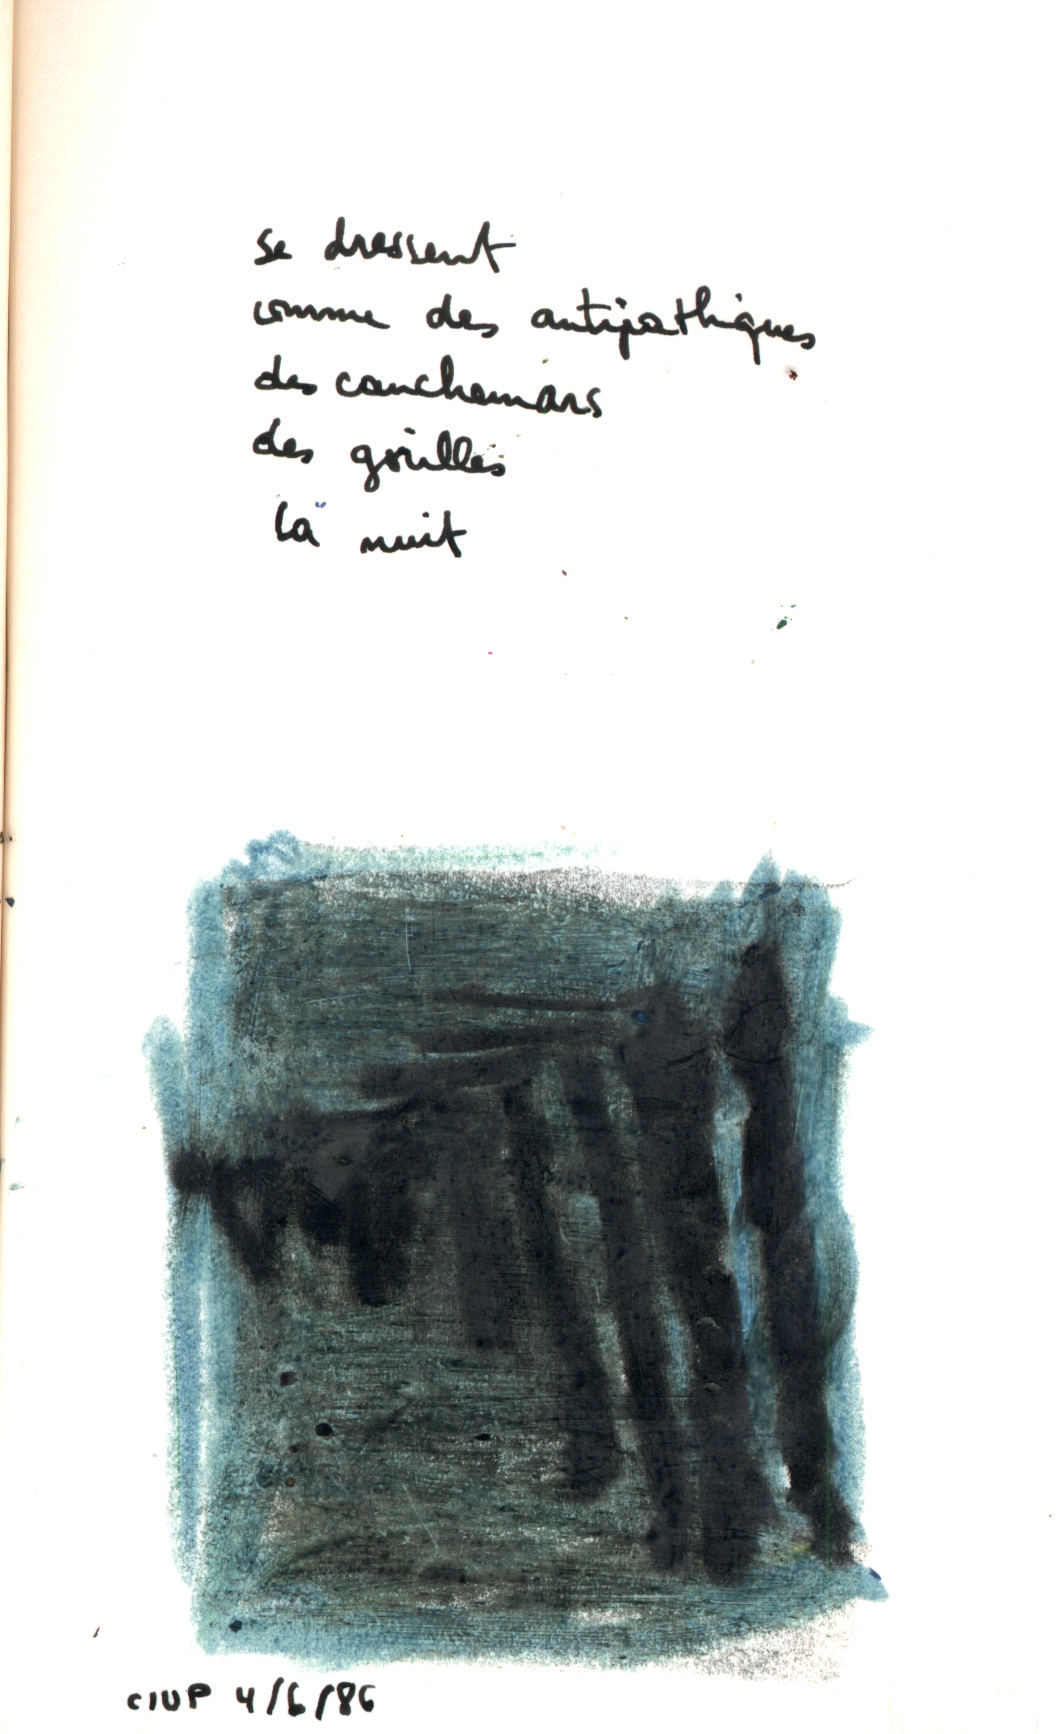 se dressent
comme des antipathiques
des cauchemars
des gorilles
la nuit
CIUP 4/6/86